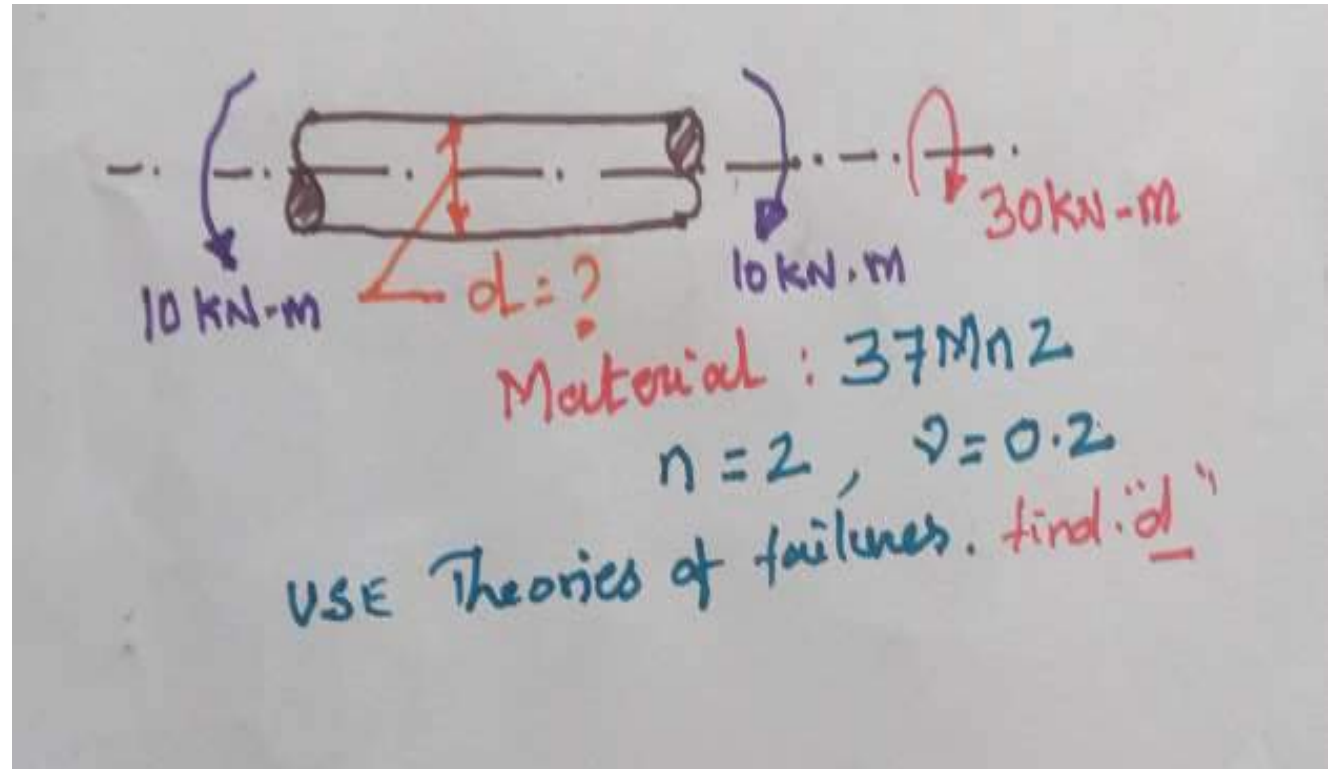 10 KN-m
d = ?
10 KN.m
30KN-m
Material : 37Mn2
n = 2, ν = 0.2
USE Theories of failures. find. "d"